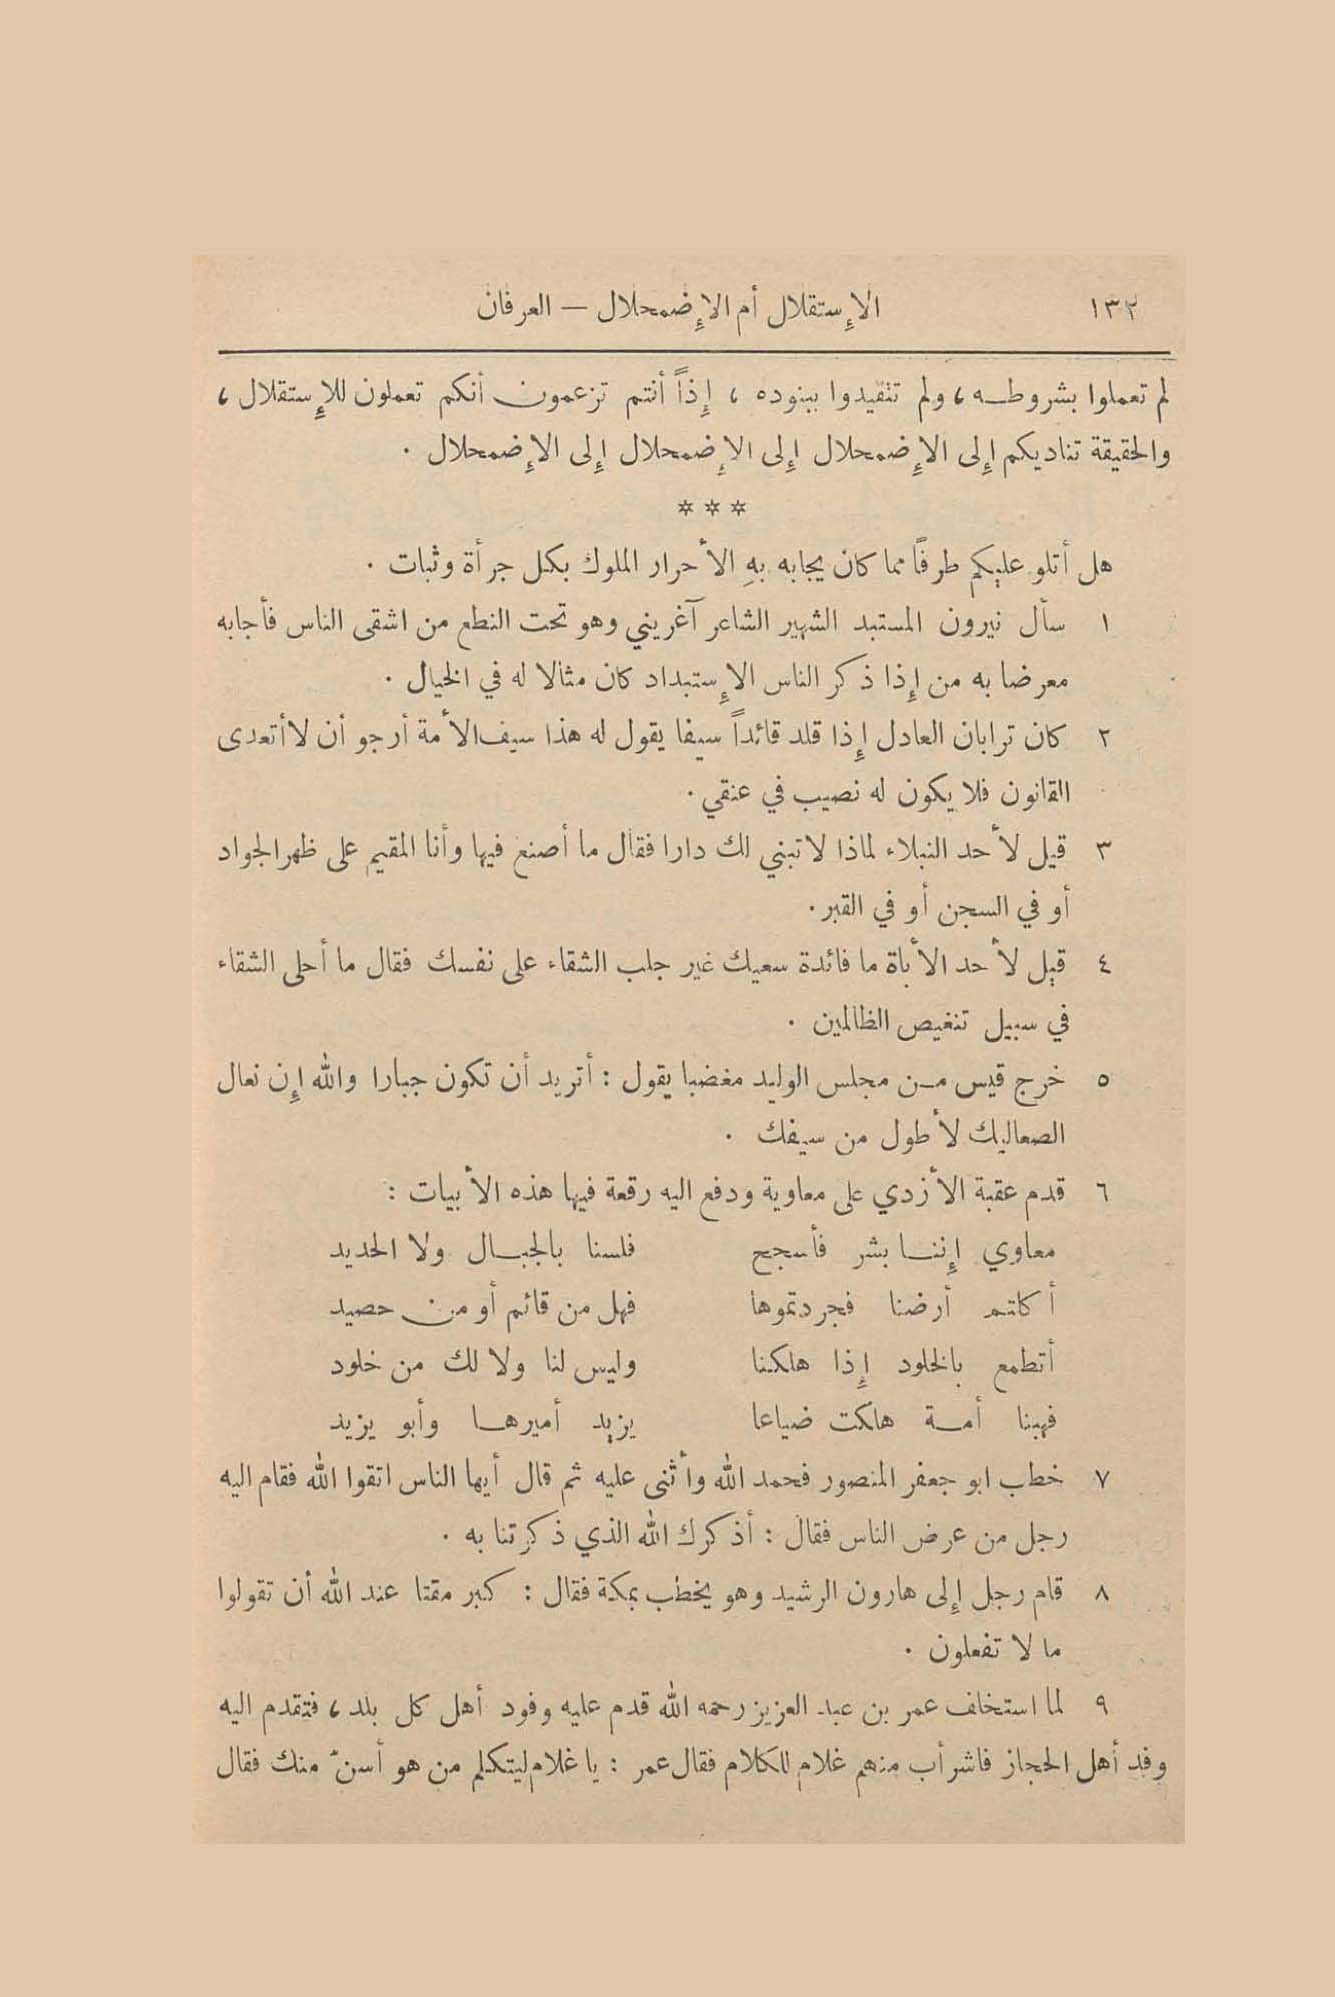 ١٣٢ الإستقلال أم الإضمحلال — العرفان
لم تعملوا بشروطه، ولم تتقيدوا ببنوده ، إذاً أنتم تزعمون أنكم تعملون للإستقلال ،
والحقيقة تناديكم إلى الإضمحلال إلى الإضمحلال إلى الإضمحلال .
* * *
هل أتلو عليكم طرفاً مما كان يجابه بهِ الأحرار الملوك بكل جرأة وثبات .
١ سأل نيرون المستبد الشهير الشاعر آغريني وهو تحت النطع من اشقى الناس فأجابه
معرضا به من إذا ذكر الناس الإستبداد كان مثالا له في الخيال .
٢ كان ترابان العادل إذا قلد قائداً سيفا يقول له هذا سيف الأمة أرجو أن لا أتعدى
القانون فلا يكون له نصيب في عنقي .
٣ قيل لأحد النبلاء لماذا لا تبني لك دارا فقال ما أصنع فيها وأنا المقيم على ظهر الجواد
أو في السجن أو في القبر .
٤ قيل لأحد الأباة ما فائدة سعيك غير جلب الشقاء على نفسك فقال ما أحلى الشقاء
في سبيل تنغيص الظالمين .
٥ خرج قيس من مجلس الوليد مغضبا يقول : أتريد أن تكون جبارا والله إن نعال
الصعاليك لأطول من سيفك .
٦ قدم عقبة الأزدي على معاوية ودفع اليه رقعة فيها هذه الأبيات :
معاوي إننا بشر فأسجح فلسنا بالجبال ولا الحديد
أكلتم أرضنا فجردتموها فهل من قائم أو من حصيد
أتطمع بالخلود إذا هلكنا وليس لنا ولا لك من خلود
فهبنا أمة هلكت ضياعا يزيد أميرها وأبو يزيد
٧ خطب ابو جعفر المنصور فحمد الله وأثنى عليه ثم قال أيها الناس اتقوا الله فقام اليه
رجل من عرض الناس فقال : أذكرك الله الذي ذكرتنا به .
٨ قام رجل إلى هارون الرشيد وهو يخطب بمكة فقال : كبر مقتا عند الله أن تقولوا
ما لا تفعلون .
٩ لما استخلف عمر بن عبد العزيز رحمه الله قدم عليه وفود أهل كل بلد ، فتقدم اليه
وفد أهل الحجاز فاشرأب منهم غلام للكلام فقال عمر : يا غلام ليتكلم من هو أسنّ منك فقال